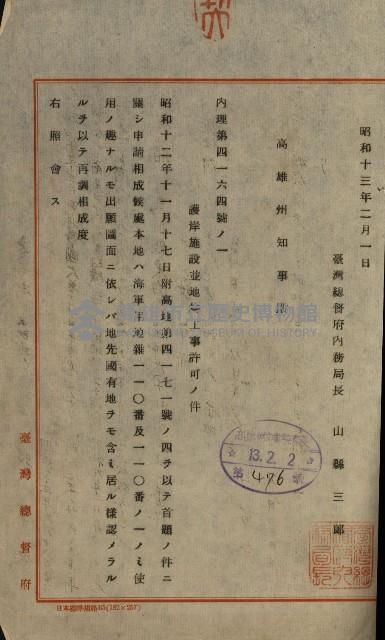 昭和十三年二月一日
臺灣總督府內務局長 山縣三郎
高雄州知事殿
內理第四一六四號ノ一
護岸施設並地上工事許可ノ件
昭和十二年十一月十七日附高土第四一七一號ノ四ヲ以テ首題ノ件ニ
關シ申請相成候處本地ハ海軍用地雜一一〇番及一一〇番ノ一ノミ使
用ノ趣ナルモ出願圖面ニ依レバ地先國有地ヲモ含ミ居ル樣認メラル
ルヲ以テ再調相成度
右照會ス
13.2.2
第 476 號
臺灣總督府
高雄市立歷史博物館